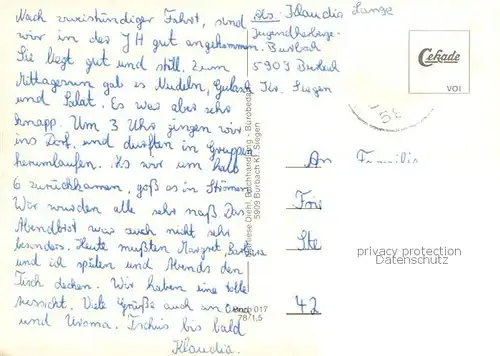 Nach zweistündiger Fahrt, sind
wir in der JH gut angekommen.
Sie liegt gut und still. Zum
Mittagessen gab es Nudeln, Gulasch
und Salat. Es war aber sehr
knapp. Um 3 Uhr gingen wir
ins Dorf, und durften in Gruppen
herumlaufen. Als wir um halb
6 zurückkamen, goß es in Strömen.
Wir wurden alle sehr naß. Das
Abendbrot war auch nicht sehr
besonders. Heute mußten Margret, Barbara
und ich spülen und Abends den
Tisch decken. Wir haben eine tolle
Aussicht. Viele Grüße auch an Oma
und Uroma. Tschüs bis bald
Klaudia.
Abs. Klaudia Lange
Jugendherberge
Burbach
5903 Burbach
Kr. Siegen
Cekade
VOI
58
Diehl, Buchhandlung - Bürobedarf
5909 Burbach Kr. Siegen
017
78/1,5
An Familie
Fri
Ste
42
privacy protection
Datenschutz